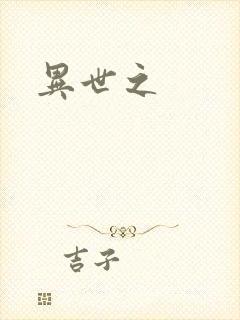 異世之
吉子